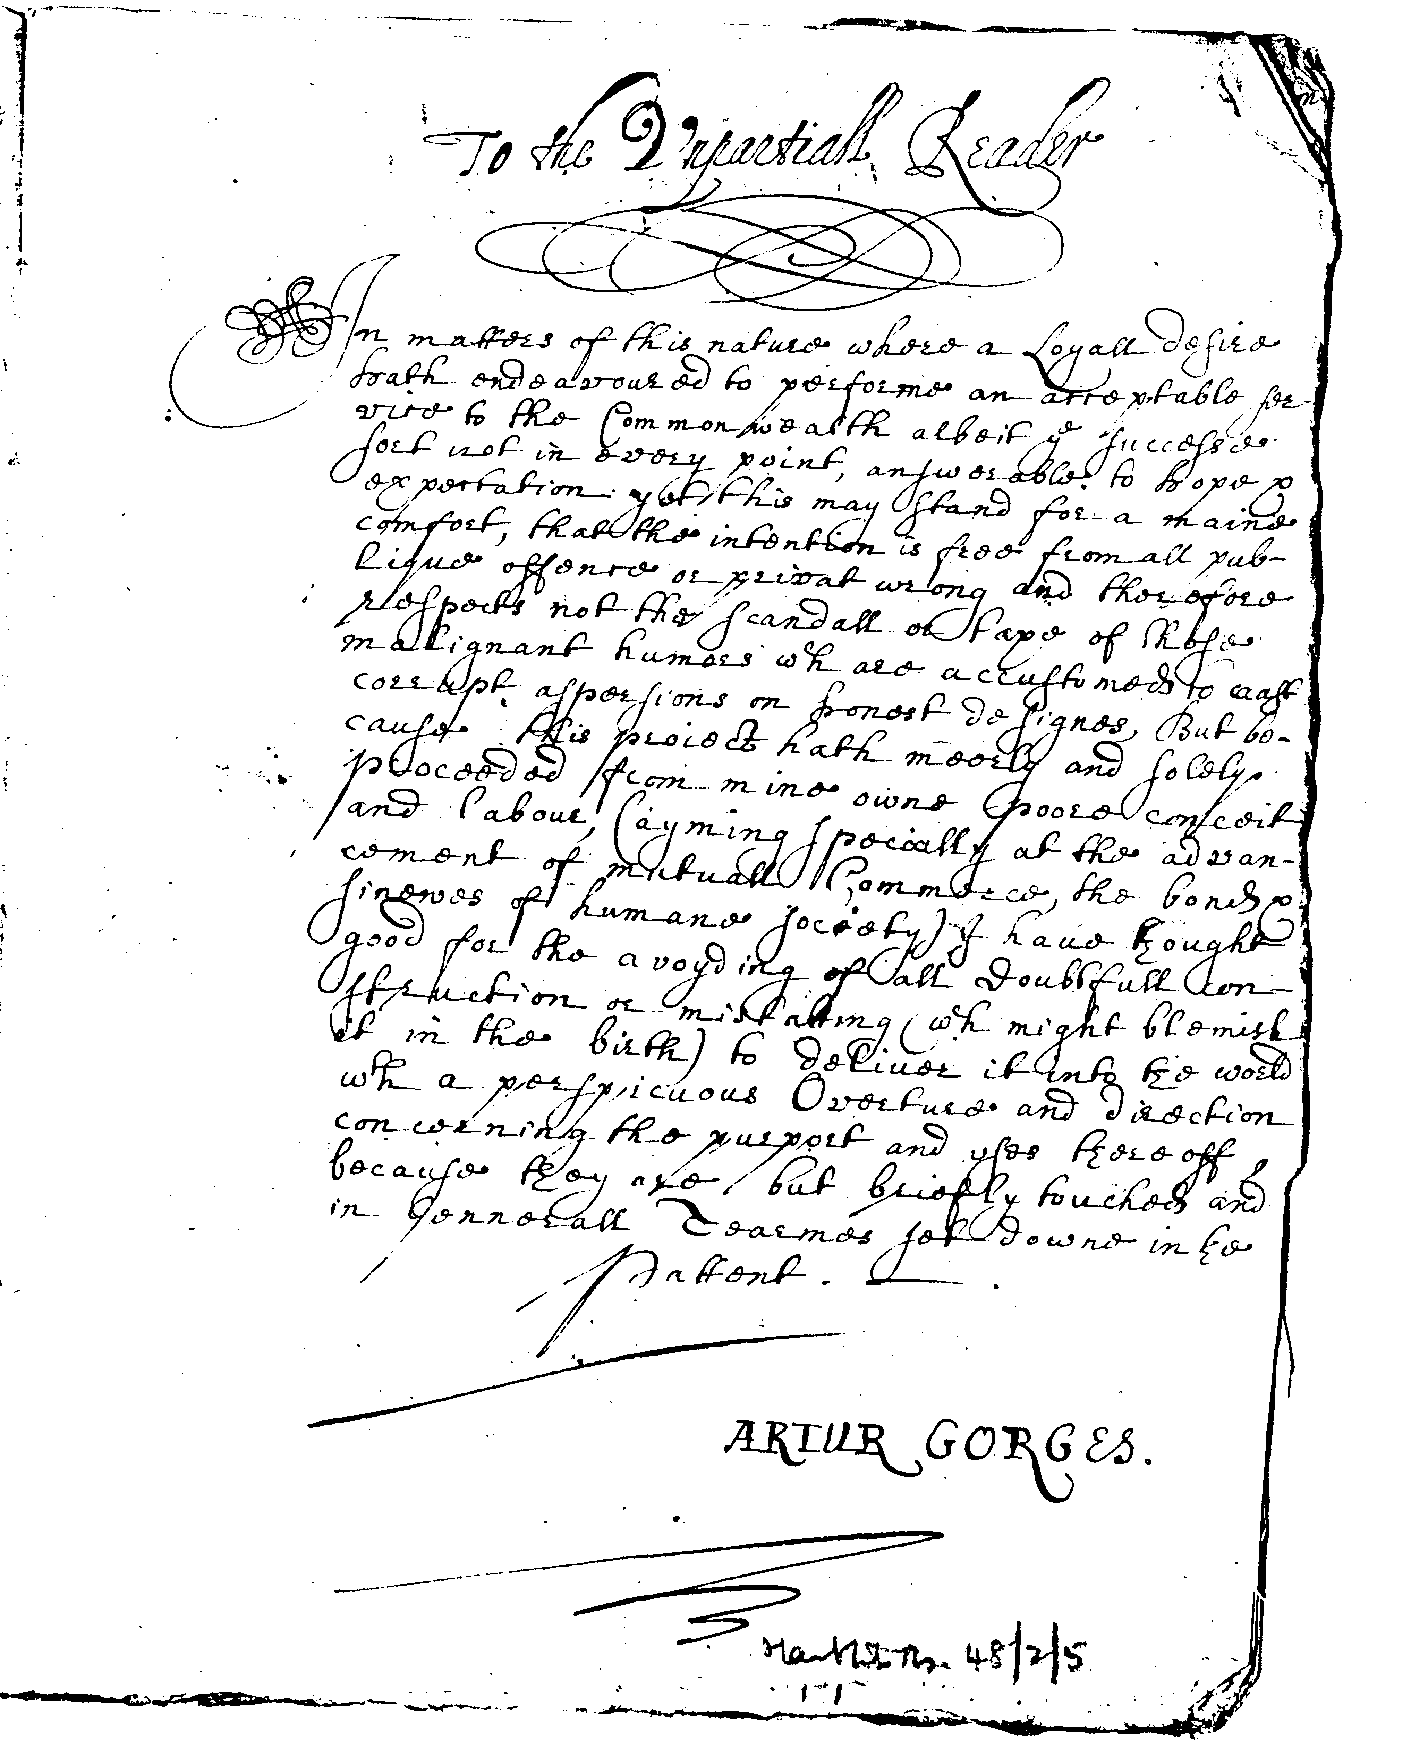 To the Vnpartiall Reader
In matters of this nature where a Loyall desire
hath endeavoured to performe an acceptable ser
vice to the Common wealth albeit ye successe
sort not in every point, answerable to hope &
expectation yet this may stand for a maine
comfort, that the intention is free from all pub-
lique offence or privat wrong and therefore
respects not the scandall or taxe of those
malignant humors wch are accustomed to cast
corrupt aspersions on honest designes, But be-
cause this proiect hath meerly and solely
proceeded from mine owne poore conceit
and labour, (ayming specially at the advan-
cement of mutuall Commerce, the bonds &
sinewes of humane society) I have thought
good for the avoyding of all doubtfull con-
struction or mistaking (wch might blemish
it in the birth) to deliver it into the world
wth a perspicuous Overture and direction
concerning the purport and vses thereoff,
because they are but briefly touched and
in Gennerall Tearmes set downe in the
Pattent.
ARTUR GORGES.
48/2/5